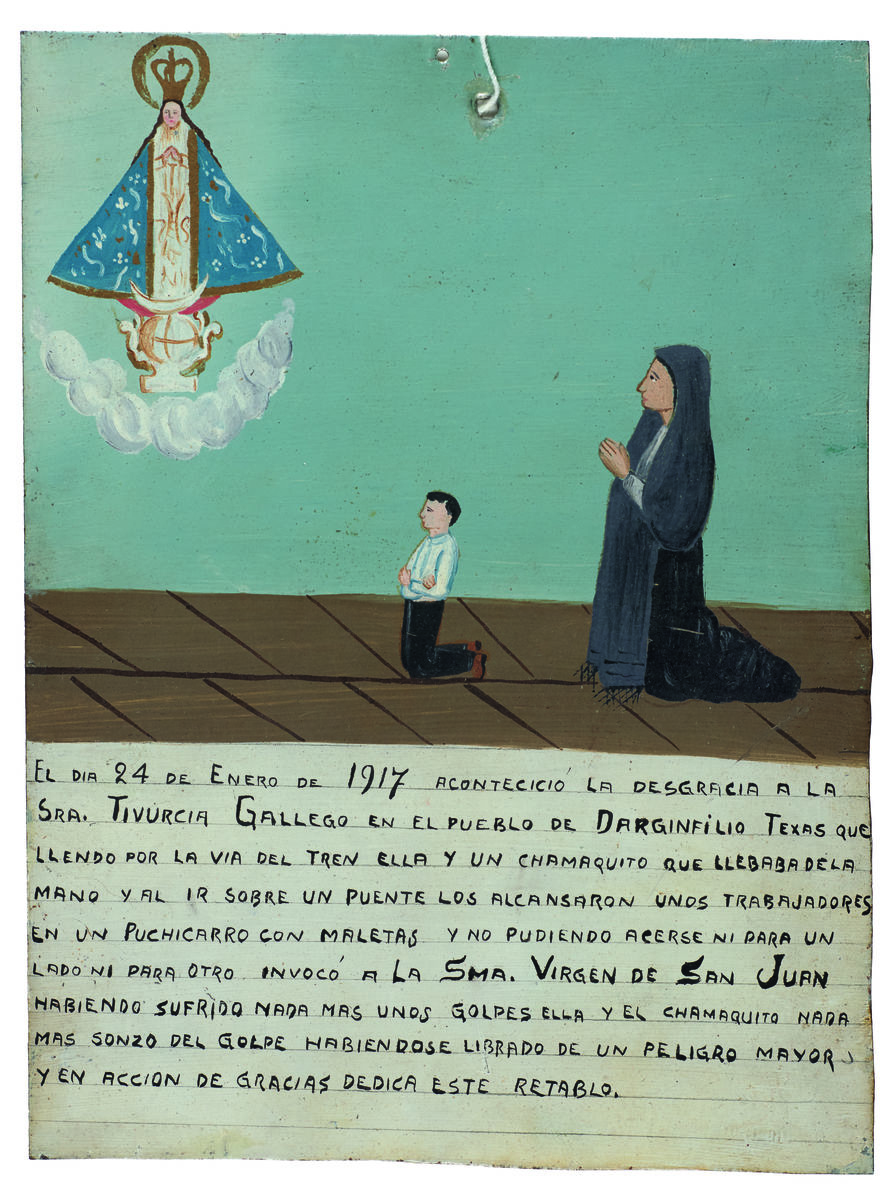 EL DIA 24 DE ENERO DE 1917 ACONTECICIÓ LA DESGRACIA A LA
SRA. TIVURCIA GALLEGO EN EL PUEBLO DE DARGINFILIO TEXAS QUE
LLENDO POR LA VIA DEL TREN ELLA Y UN CHAMAQUITO QUE LLEBABA DE LA
MANO Y AL IR SOBRE UN PUENTE LOS ALCANSARON UNOS TRABAJADORES
EN UN PUCHICARRO CON MALETAS Y NO PUDIENDO ACERSE NI PARA UN
LADO NI PARA OTRO INVOCÓ A LA SMA. VIRGEN DE SAN JUAN
HABIENDO SUFRIDO NADA MAS UNOS GOLPES ELLA Y EL CHAMAQUITO NADA
MAS SONZO DEL GOLPE HABIENDOSE LIBRADO DE UN PELIGRO MAYOR
Y EN ACCION DE GRACIAS DEDICA ESTE RETABLO.